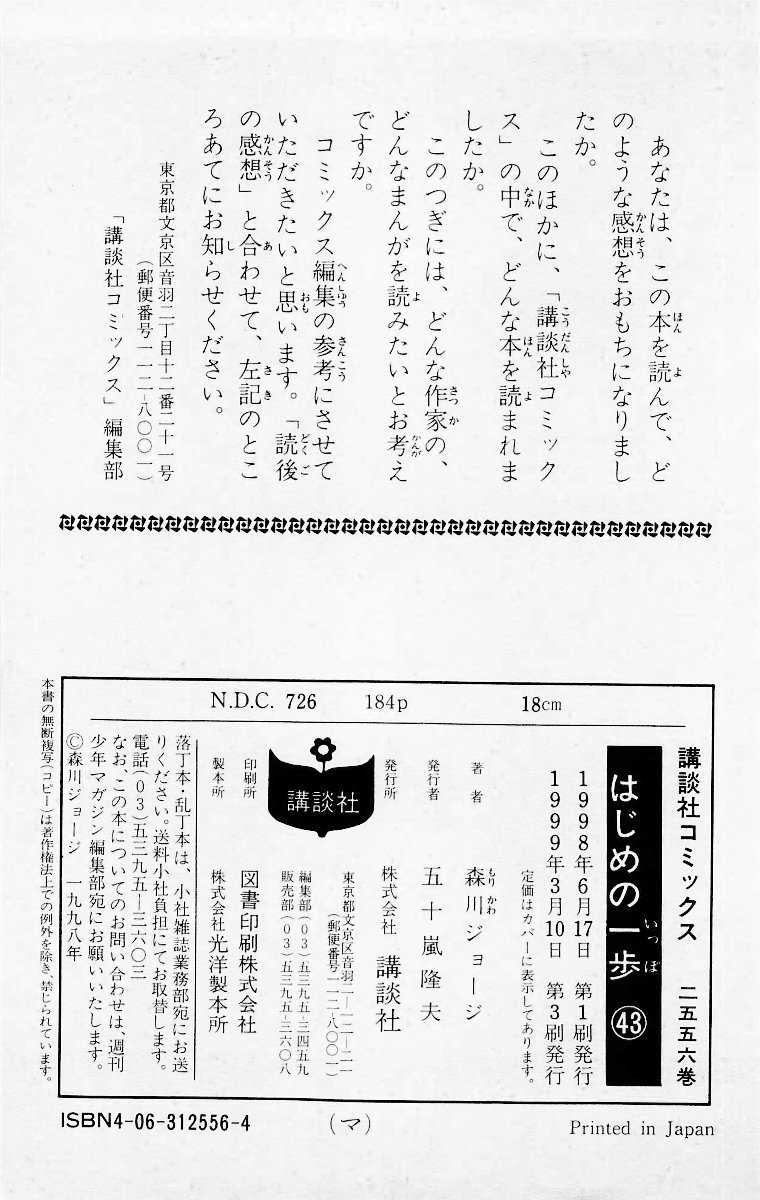 あなたは、この本を読んで、ど
のような感想をおもちになりまし
たか。
このほかに、「講談社コミック
ス」の中で、どんな本を読まれま
したか。
このつぎには、どんな作家の、
どんなまんがを読みたいとお考え
ですか。
コミックス編集の参考にさせて
いただきたいと思います。「読後
の感想」と合わせて、左記のとこ
ろあてにお知らせください。
東京都文京区音羽二丁目十二番二十一号
(郵便番号一一二-八〇〇一)
「講談社コミックス」編集部
N.D.C. 726 184p 18cm
講談社コミックス 二五五六巻
はじめの一歩 ㊸
1998年6月17日 第1刷発行
1999年3月10日 第3刷発行
定価はカバーに表示してあります。
著者 森川ジョージ
発行者 五十嵐隆夫
発行所 株式会社 講談社
東京都文京区音羽二-一二-二一
(郵便番号一一二-八〇〇一)
編集部(03)五三九五-三四五九
販売部(03)五三九五-三六〇八
講談社
印刷所 図書印刷株式会社
製本所 株式会社光洋製本所
落丁本・乱丁本は、小社雑誌業務部宛にお送
りください。送料小社負担にてお取替します。
電話(03)五三九五-三六〇三
なお、この本についてのお問い合わせは、週刊
少年マガジン編集部宛にお願いいたします。
©森川ジョージ 一九九八年
本書の無断複写(コピー)は著作権法上での例外を除き、禁じられています。
ISBN4-06-312556-4 (マ) Printed in Japan